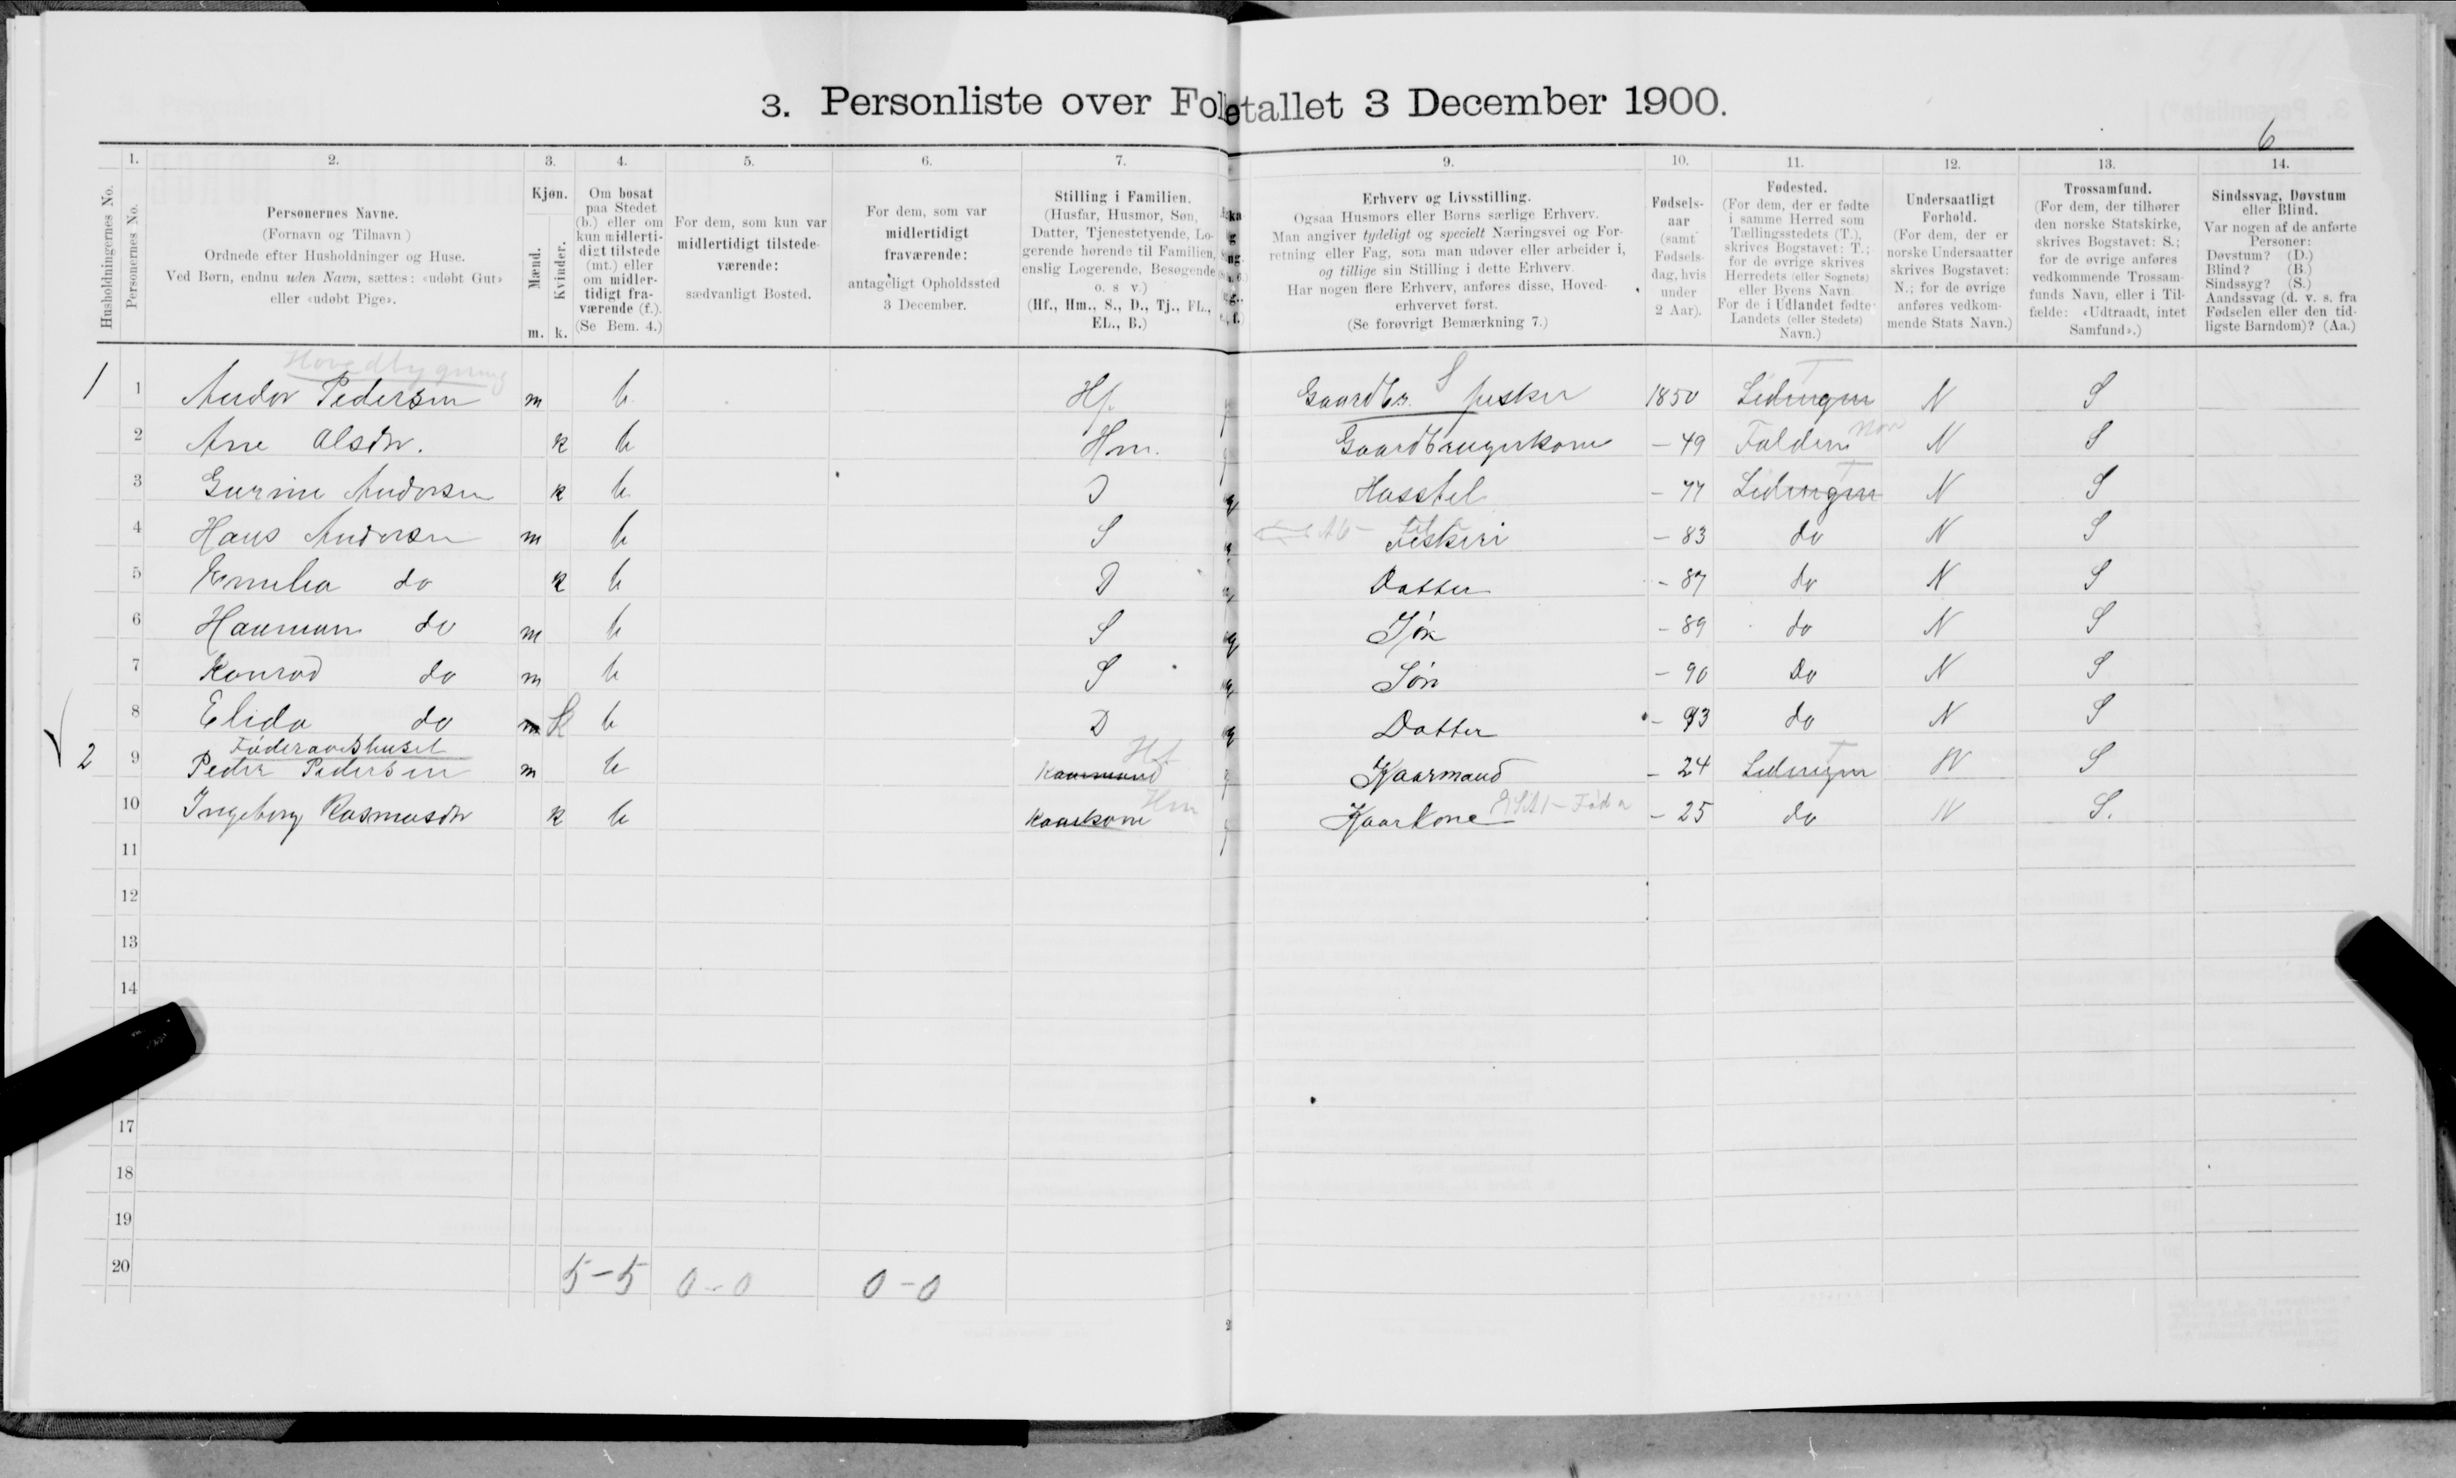 3. Personliste over Folketallet 3 December 1900.
6
1. 2. 3. 4. 5. 6. 7. 9. 10. 11. 12. 13. 14.
Husholdningernes No.
Personernes No.
Personernes Navne.
(Fornavn og Tilnavn)
Ordnede efter Husholdninger og Huse.
Ved Børn, endnu uden Navn, sættes: «udøbt Gut»
eller «udøbt Pige».
Kjøn.
Mænd.
Kvinder.
m. k.
Om bosat
paa Stedet
(b.) eller om
kun midlerti-
digt tilstede
(mt.) eller
om midler-
tidigt fra-
værende (f.).
(Se Bem. 4.)
For dem, som kun var
midlertidigt tilstede-
værende:
sædvanligt Bosted.
For dem, som var
midlertidigt
fraværende:
antageligt Opholdssted
3 December.
Stilling i Familien.
(Husfar, Husmor, Søn,
Datter, Tjenestetyende, Lo-
gerende hørende til Familien,
enslig Logerende, Besøgende
o. s v.)
(Hf., Hm., S., D., Tj., FL.,
EL., B.)
Erhverv og Livsstilling.
Ogsaa Husmors eller Børns særlige Erhverv.
Man angiver tydeligt og specielt Næringsvei og For-
retning eller Fag, som man udøver eller arbeider i,
og tillige sin Stilling i dette Erhverv.
Har nogen flere Erhverv, anføres disse, Hoved-
erhvervet først.
(Se forøvrigt Bemærkning 7.)
Fødsels-
aar
(samt
Fødsels-
dag, hvis
under
2 Aar).
Fødested.
(For dem, der er fødte
i samme Herred som
Tællingsstedets (T.),
skrives Bogstavet: T.;
for de øvrige skrives
Herredets (eller Sognets)
eller Byens Navn
For de i Udlandet fødte
Landets (eller Stedets)
Navn.)
Undersaatligt
Forhold.
(For dem, der er
norske Undersaatter
skrives Bogstavet:
N.; for de øvrige
anføres vedkom-
mende Stats Navn.)
Trossamfund.
(For dem, der tilhører
den norske Statskirke,
skrives Bogstavet: S.;
for de øvrige anføres
vedkommende Trossam-
funds Navn, eller i Til-
fælde: «Udtraadt, intet
Samfund».)
Sindssvag, Døvstum
eller Blind.
Var nogen af de anførte
Personer:
Døvstum? (D.)
Blind? (B.)
Sindssyg? (S.)
Aandssvag (d. v. s. fra
Fødselen eller den tid-
ligste Barndom)? (Aa.)
Hovedbygning
1 1 Andor Pedersen m b Hf. g Gaardbr. S fisker 1850 Lidingen T N S
2 Ane Olsdtr. k b Hm. g Gaardbrugerkone - 49 Folden N S
3 Gurine Andorsen k b D ug Husstel - 77 Lidingen T N S
4 Hans Andorsen m b S ug Fiskeri - 83 do N S
5 Emilia do k b D ug Datter - 87 do N S
6 Hanmun do m b S ug Søn - 89 do N S
7 Konrad do m b S ug Søn - 90 Do N S
8 Elida do m k b D ug Datter - 93 do N S
Føderaadshuset
2 9 Peder Pedersen m b Kaarmand Hf g Kaarmand - 24 Lidingen T N S
10 Ingeborg Rasmusdtr k b Kaarkone Hm g Kaarkone - 25 do N S.
11
12
13
14
17
18
19
20
5 - 5 0 - 0 0 - 0